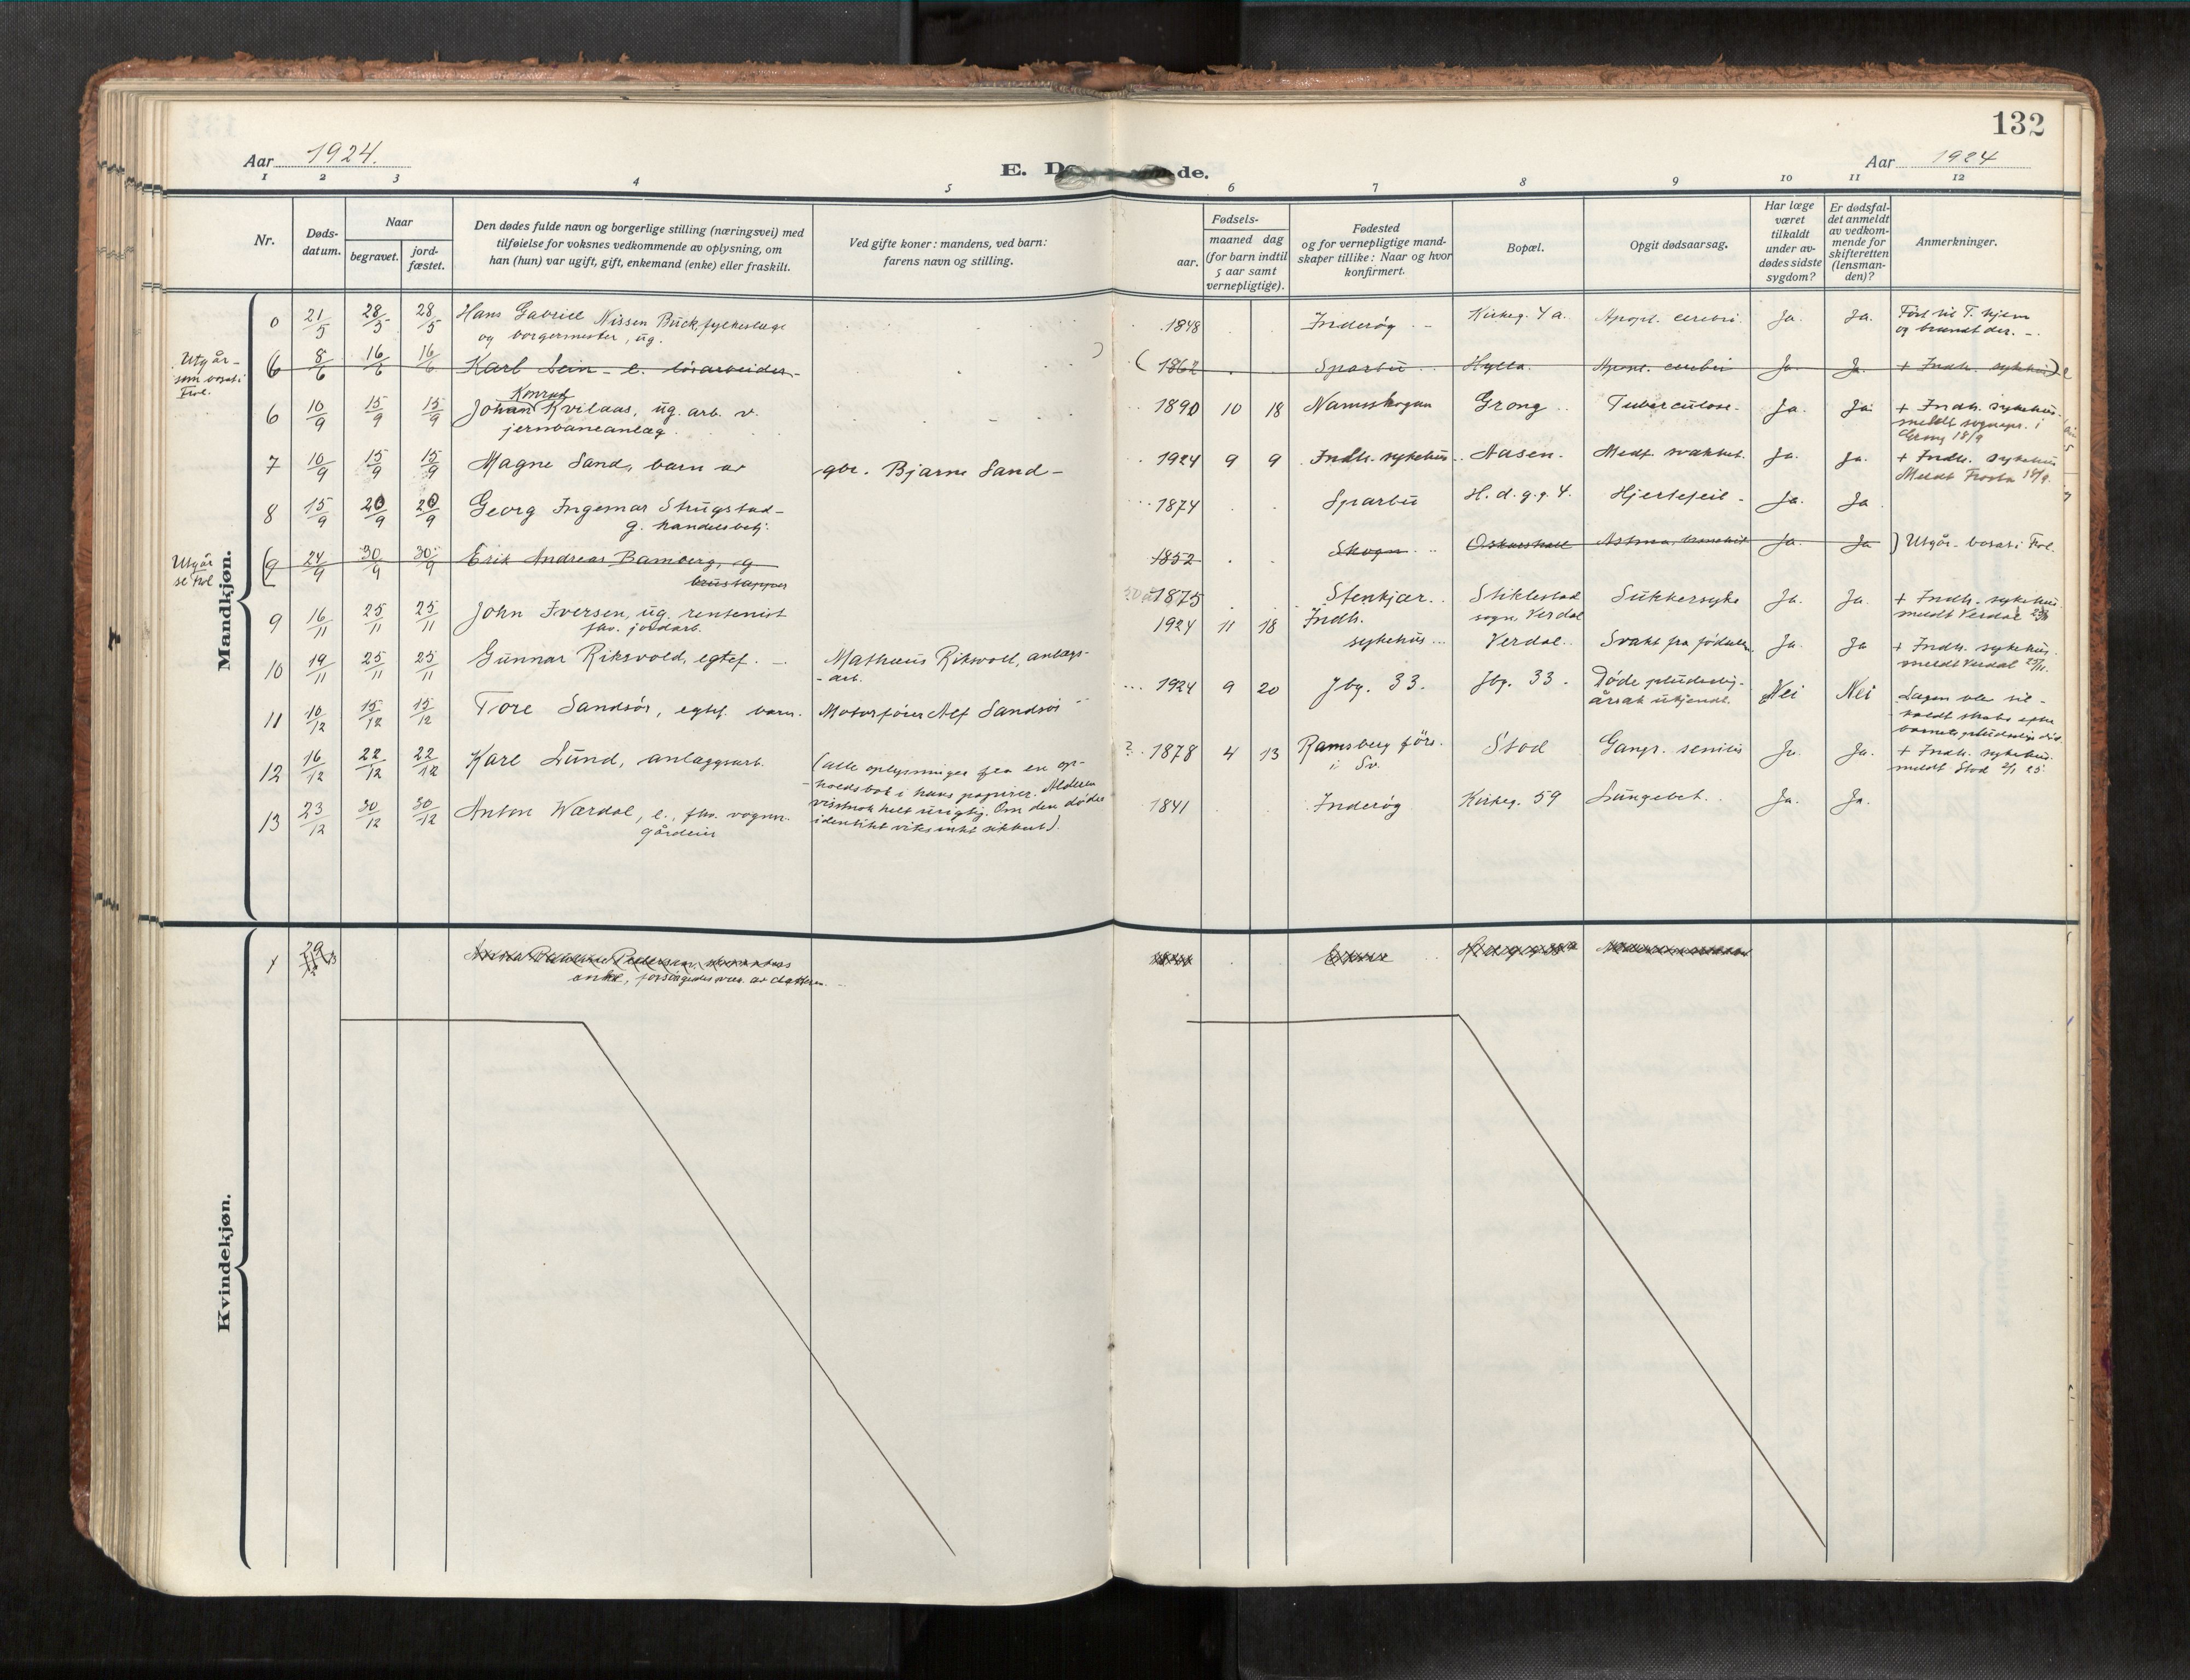 132
Aar 1924.
E. Dø de.
Aar 1924
1 2 3 4 5 6 7 8 9 10 11 12
Nr.
Døds-
datum.
Naar
begravet.
jord-
fæstet.
Den dødes fulde navn og borgerlige stilling (næringsvei) med
tilføielse for voksnes vedkommende av oplysning, om
han (hun) var ugift, gift, enkemand (enke) eller fraskilt.
Ved gifte koner: mandens, ved barn:
farens navn og stilling.
Fødsels-
aar.
maaned dag
(for barn indtil
5 aar samt
vernepligtige).
Fødested
og for vernepligtige mand-
skaper tillike: Naar og hvor
konfirmert.
Bopæl.
Opgit dødsaarsag.
Har læge
været
tilkaldt
under av-
dødes sidste
sygdom?
Er dødsfal-
det anmeldt
av vedkom-
mende for
skifteretten
(lensman-
den)?
Anmerkninger.
Mandkjøn.
0 21/5 28/5 28/5 Hans Gabriel Nissen Buck, fylkeslæge 1848 Inderøy Kirkeg. 4 a. Apopl. cerebri. Ja. Ja. Ført til T.hjem
og borgermester, ug. og brændt der.
Utgår
som bosat i
Frol.
(6 8/6 16/6 16/6 Karl Lein - e. løsarbeider (1862 Sparbu Hylla. Apopl. cerebri Ja. Ja. + Indh. sykehus)
Konrad
6 10/9 15/9 15/9 Johan Kvilaas, ug. arb. v. 1890 10 18 Namsskogan Grong Tuberculose. Ja. Ja. + Indh. sykehus.
jernbaneanlæg meldt sognepr. i
Grong 18/9
7 10/9 15/9 15/9 Magne Sand, barn av gbr. Bjarne Sand 1924 9 9 Indh. sykehus. Aasen. Medf. svakhet. Ja. Ja. + Indh. sykehus
Meldt Frosta 18/9.
8 15/9 20/9 20/9 Georg Ingemar Skugstad 1874 Sparbu H. d. g. g. 4. Hjertefeil Ja. Ja
g. handelsbetj.
Utgår
se Frol
(9 24/9 30/9 30/9 Erik Andreas Bamberg, ug 1852 Skogn Oskarshall Astma, bronchit Ja. Ja ) Utgår - bosat i Frol.
brustapper
9 16/11 25/11 25/11 John Iversen, ug. rentenist 1875 Stenkjær. Stiklestad Sukkersyke Ja. Ja. + Indh. sykehus.
fhv. jordarb. sogn, Verdal meldt Verdal
10 19/11 25/11 25/11 Gunnar Riksvold, egtef. Mathæus Rikvold, anlægs- 1924 11 18 Indh.
sykehus Verdal Svakt fra fødselen Ja. Ja + Indh. sykehus.
arb. meldt Verdal 25/11.
11 10/12 15/12 15/12 Tore Sandsør, egtef. barn. Motorfører Alf Sandsør 1924 9 20 Jbg. 33. Jbg. 33 Døde pludselig- Nei Nei Lægen ble til-
årsak ukjendt. kaldt straks efter
barnets pludselige død.
12 16/12 22/12 22/12 Karl Lund, anlæggsarb. (alle oplysninger fra en op- ? 1878 4 13 Ramsberg førs. Stod Gangr. senilis Ja Ja. + Indh. sykehus.
holdsbok i hans papirer. Alderen i Sv. meldt Stod 2/1 25.
visstnok helt urigtig. Om den dødes
identitet viks intet sikkert).
13 23/12 30/12 30/12 Anton Wærdal, e., fhv. vognm. 1841 Inderøy Kirkeg. 59 Lungebet. Ja. Ja.
gårdeier
Kvindekjøn.
1 29/12 Pedersen,
enke, forsørgedes væs. av datteren.